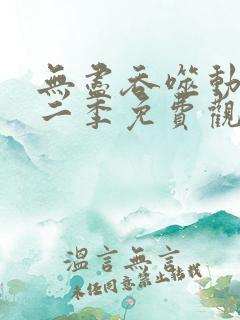 無盡吞噬動
二季免費觀
溫言無言
未经同意禁止转载